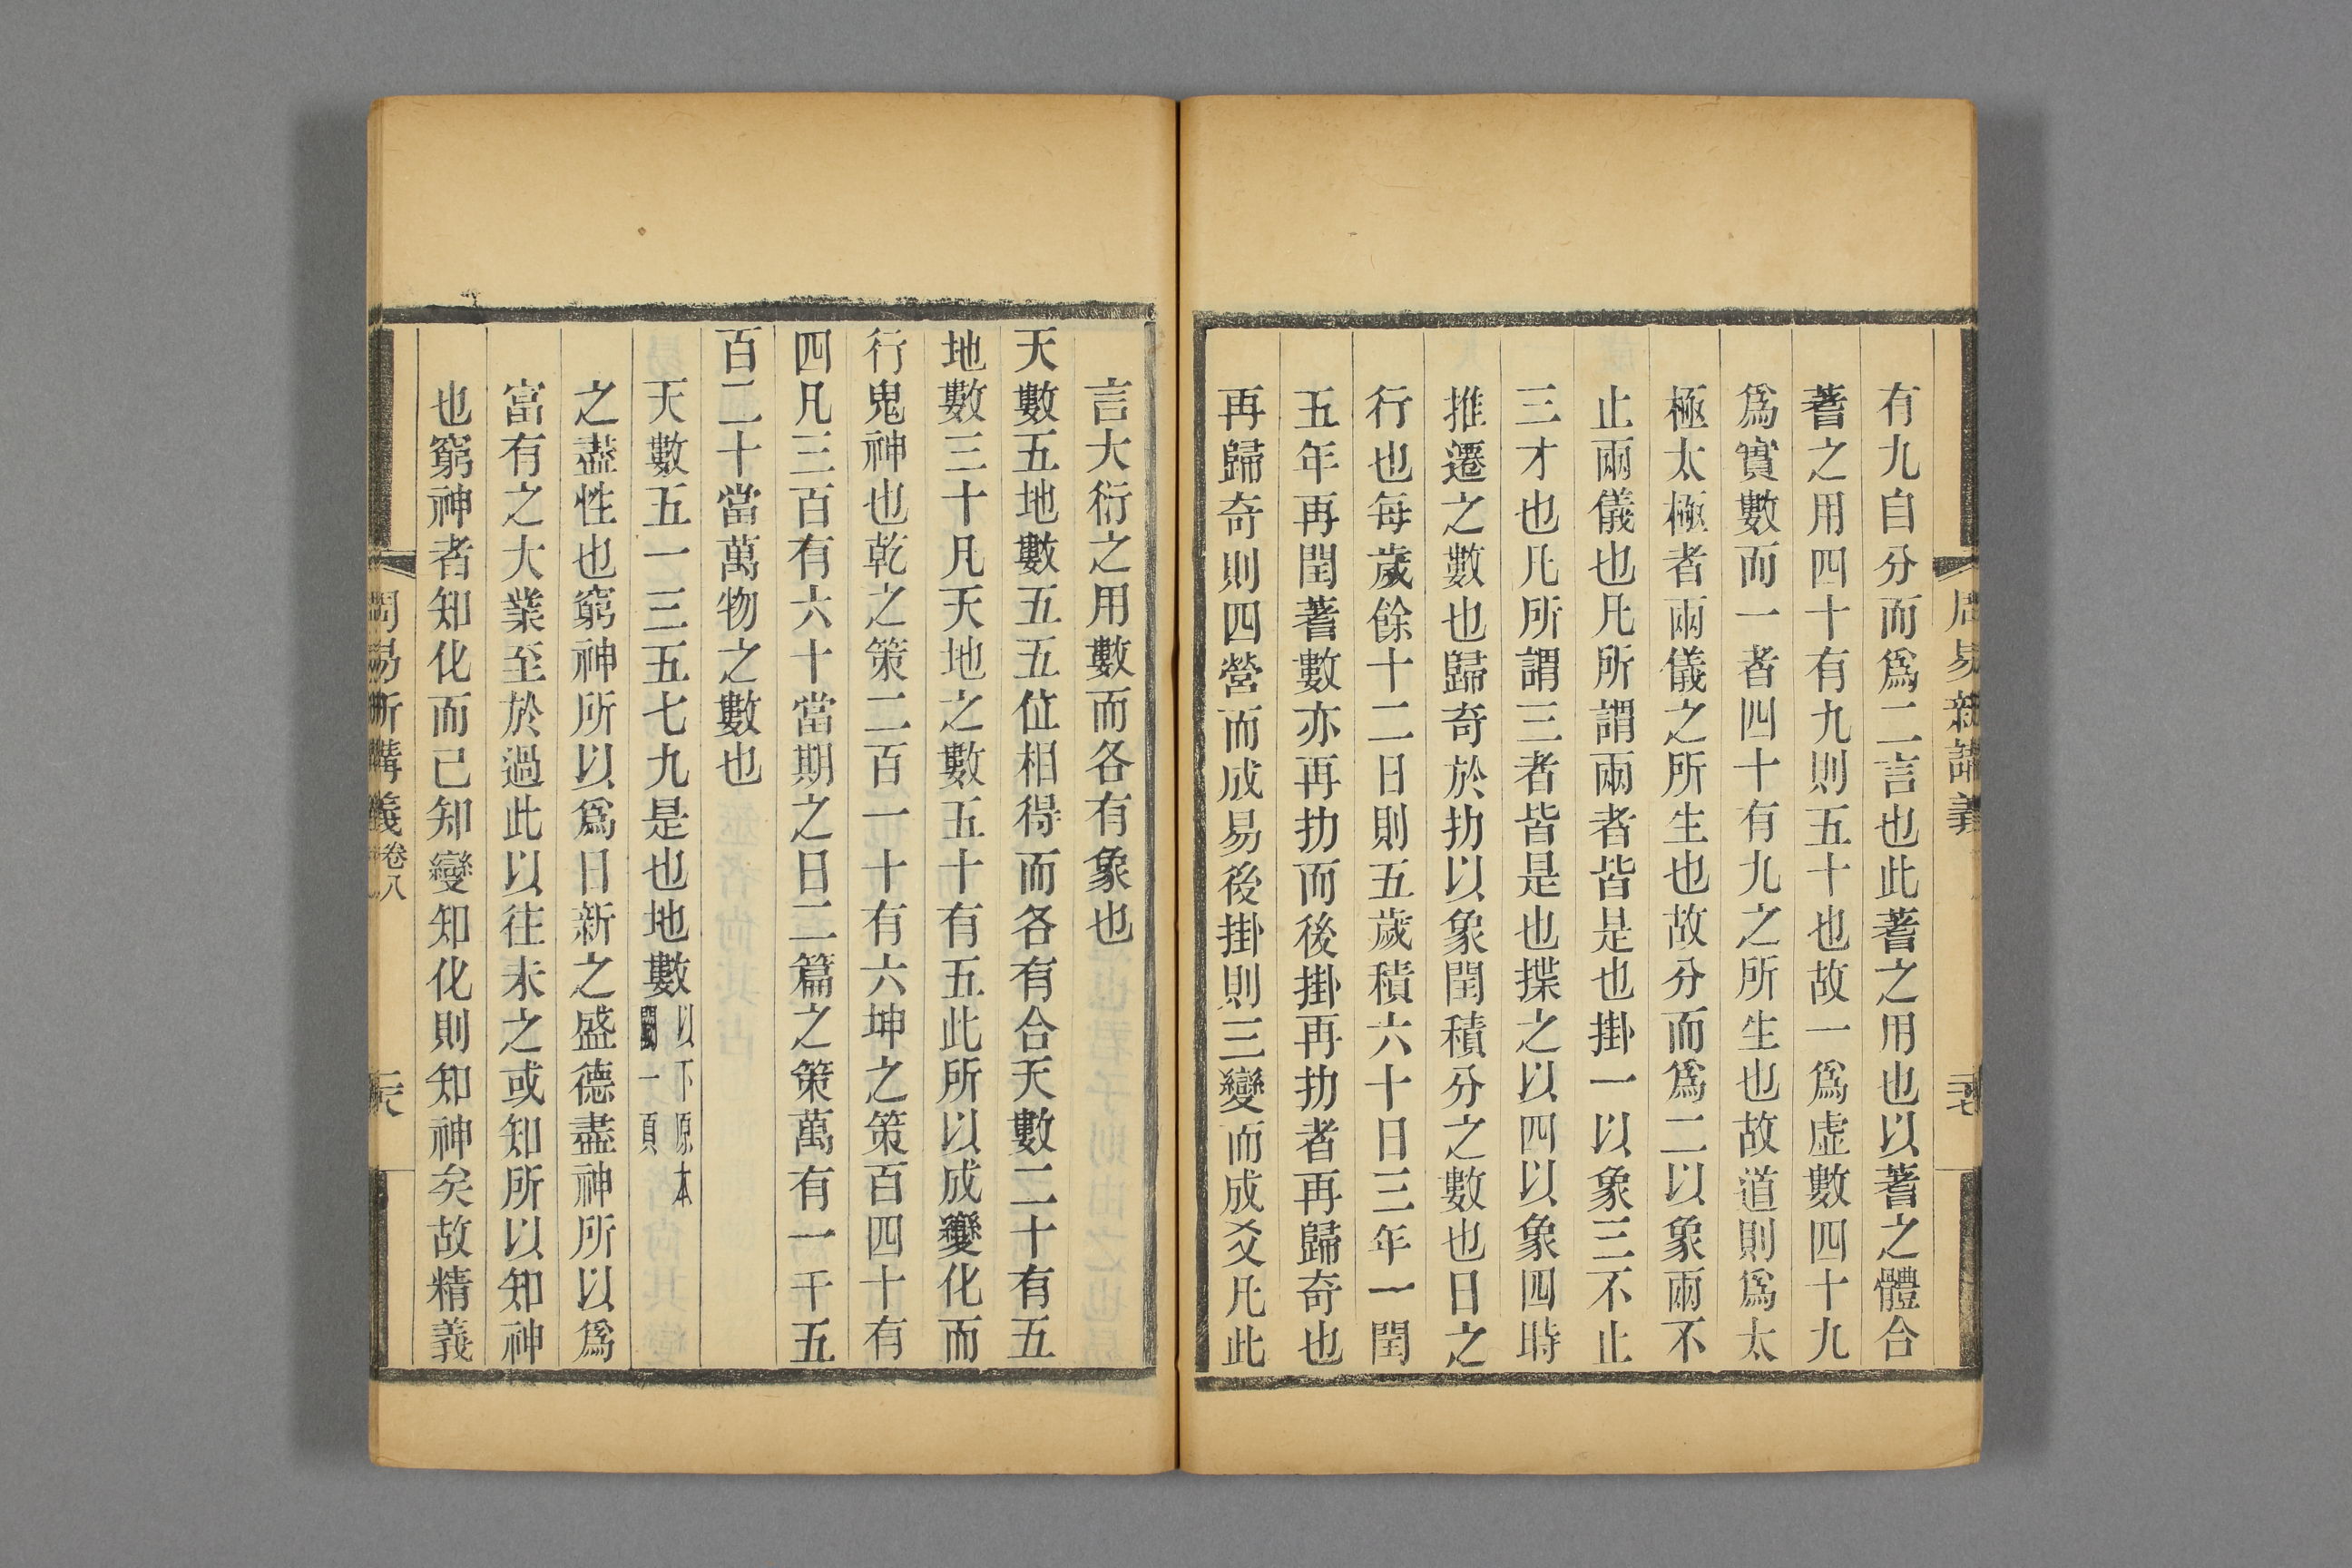 周易新講義
二七
有九自分而爲二言也此蓍之用也以蓍之體合
蓍之用四十有九則五十也故一爲虛數四十九
爲實數而一者四十有九之所生也故道則爲太
極太極者兩儀之所生也故分而爲二以象兩不
止兩儀也凡所謂兩者皆是也掛一以象三不止
三才也凡所謂三者皆是也揲之以四以象四時
推遷之數也歸奇於扐以象閏積分之數也日之
行也每歲餘十二日則五歲積六十日三年一閏
五年再閏蓍數亦再扐而後掛再扐者再歸奇也
再歸奇則四營而成易後掛則三變而成爻凡此
言大衍之用數而各有象也
天數五地數五五位相得而各有合天數二十有五
地數三十凡天地之數五十有五此所以成變化而
行鬼神也乾之策二百一十有六坤之策百四十有
四凡三百有六十當期之日二篇之策萬有一千五
百二十當萬物之數也
天數五一三五七九是也地數以下原本闕一頁
之盡性也窮神所以爲日新之盛德盡神所以爲
富有之大業至於過此以往未之或知所以知神
也窮神者知化而已知變知化則知神矣故精義
周易新講義卷八
二八